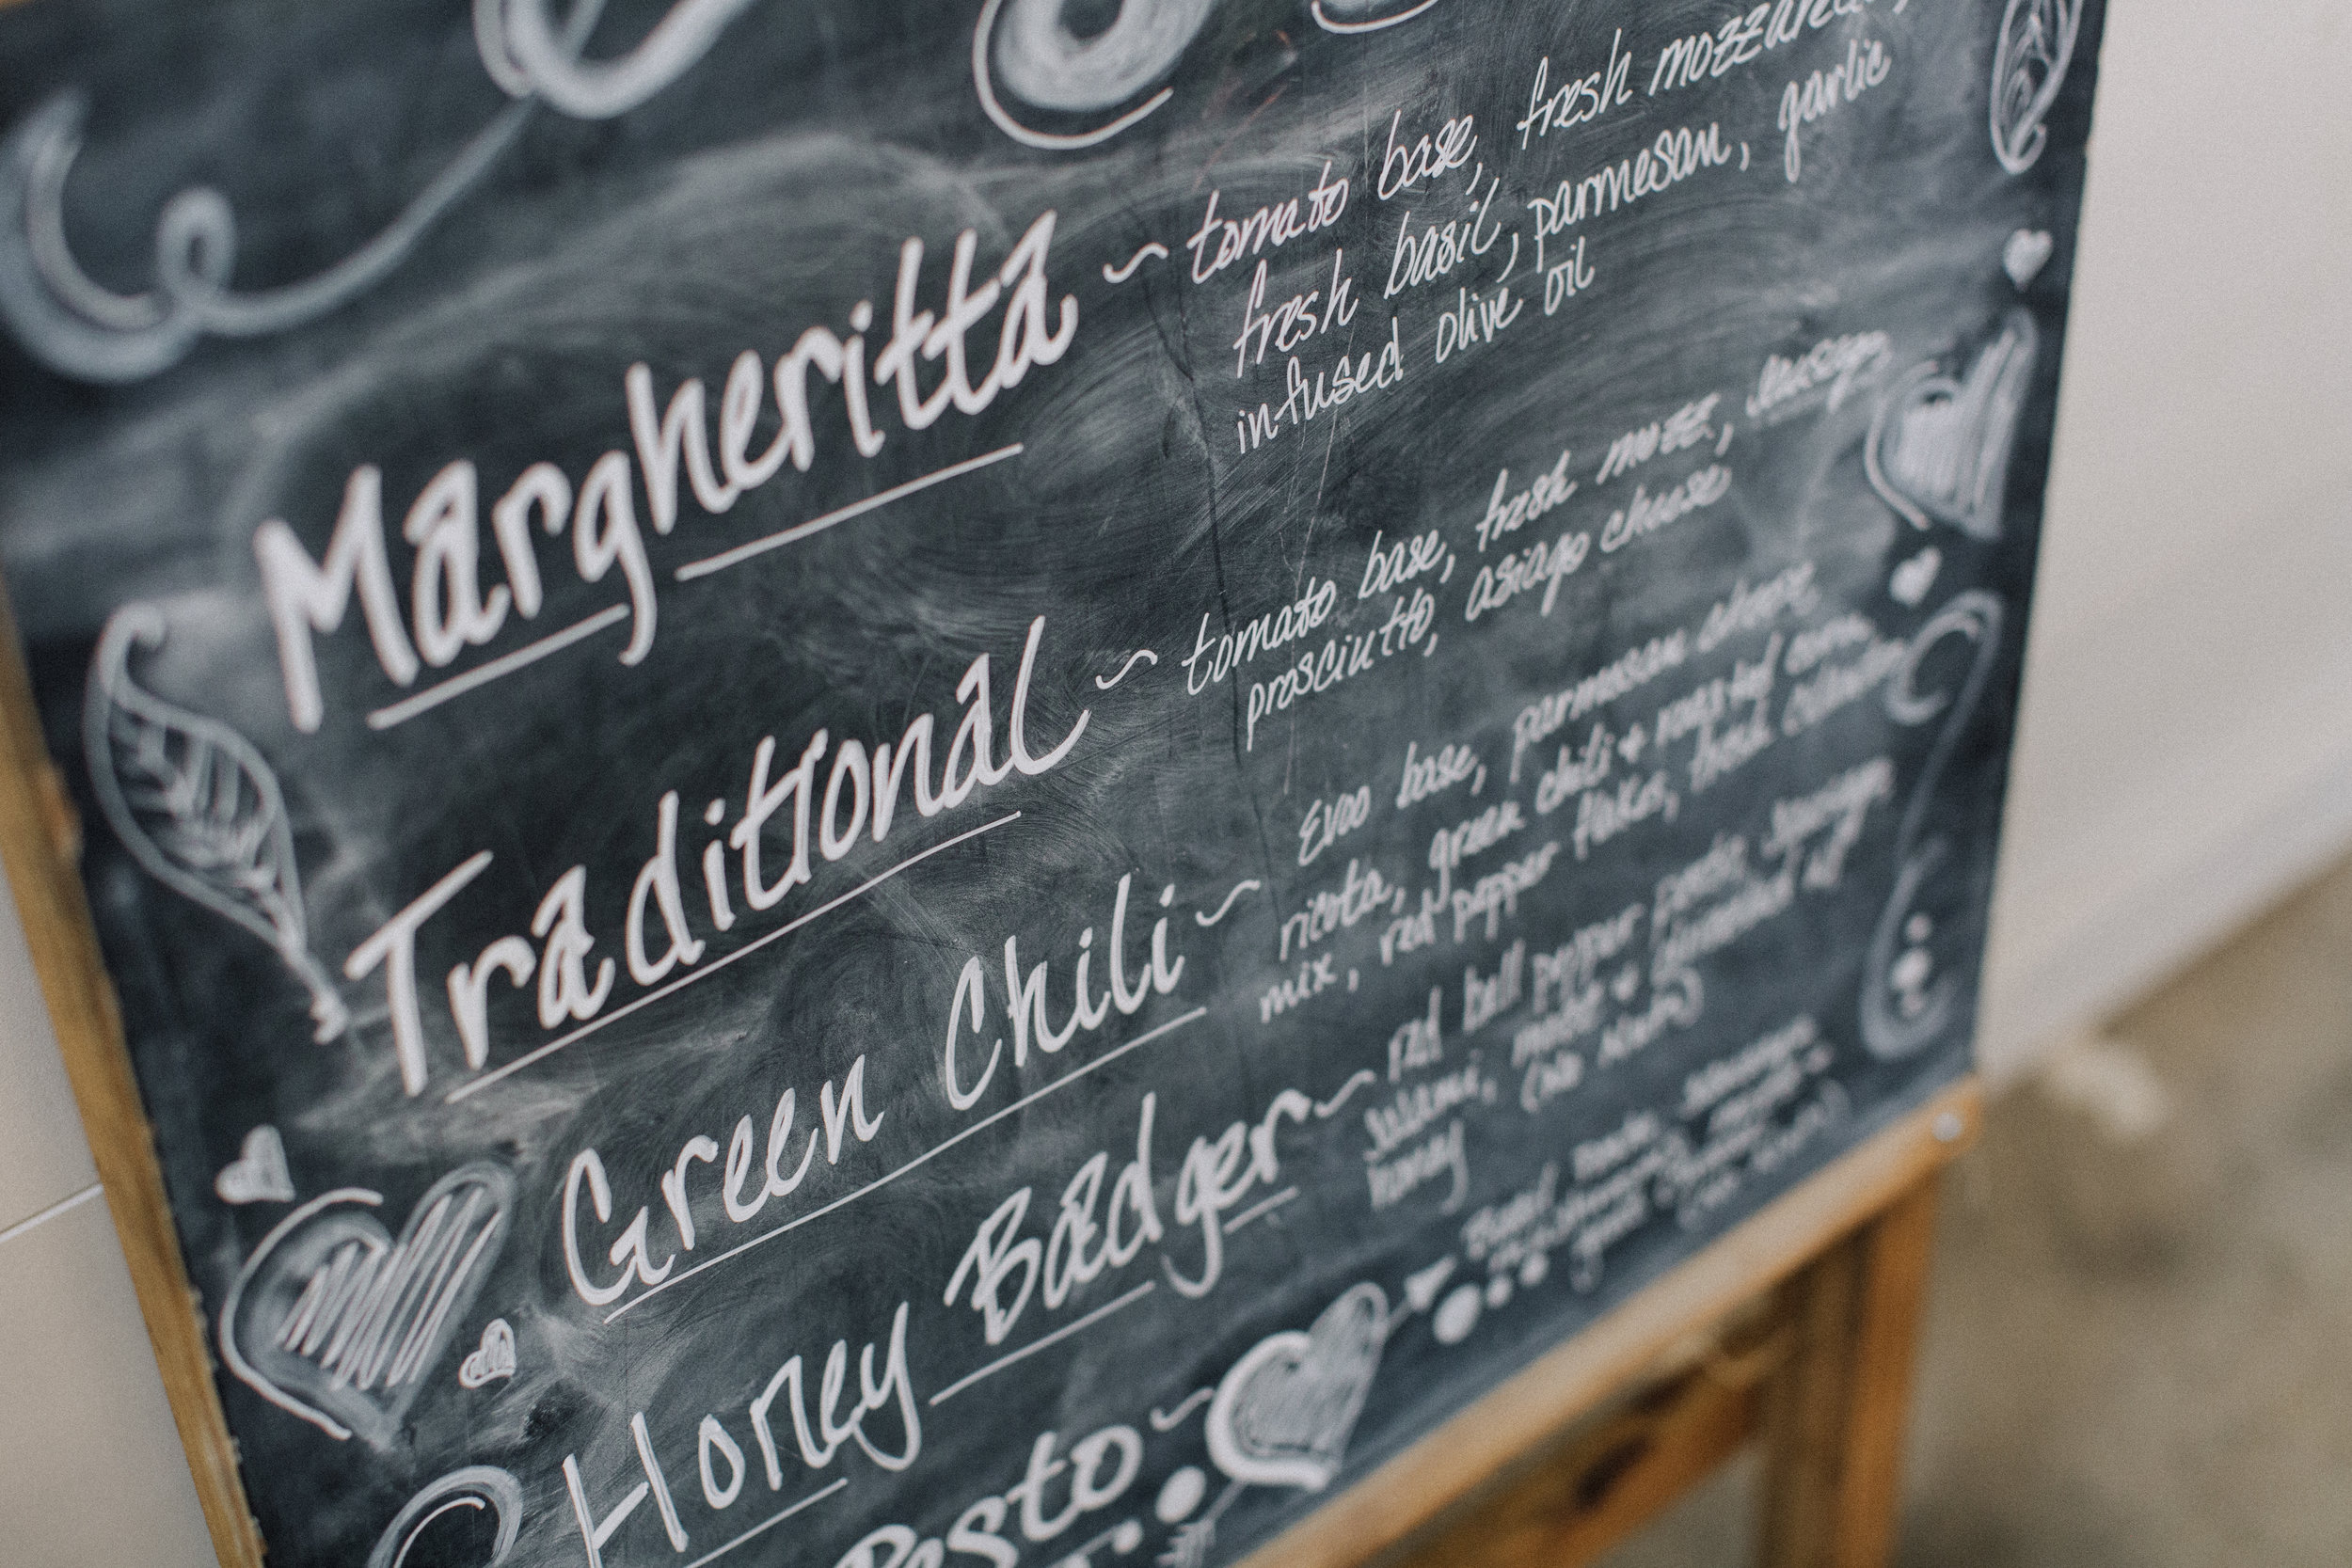 Margheritta ~ tomato base, fresh mozzarella,
fresh basil, parmesan, garlic
infused olive oil
Traditional ~ tomato base, fresh mozz, sausage,
prosciutto, asiago cheese
Green Chili ~ Evoo base, parmesan cheese,
ricota, green chili + roasted corn
mix, red pepper flakes, fresh cilantro
Honey Badger ~ red bell pepper pesto, sausage,
salami,
honey
Pesto ~